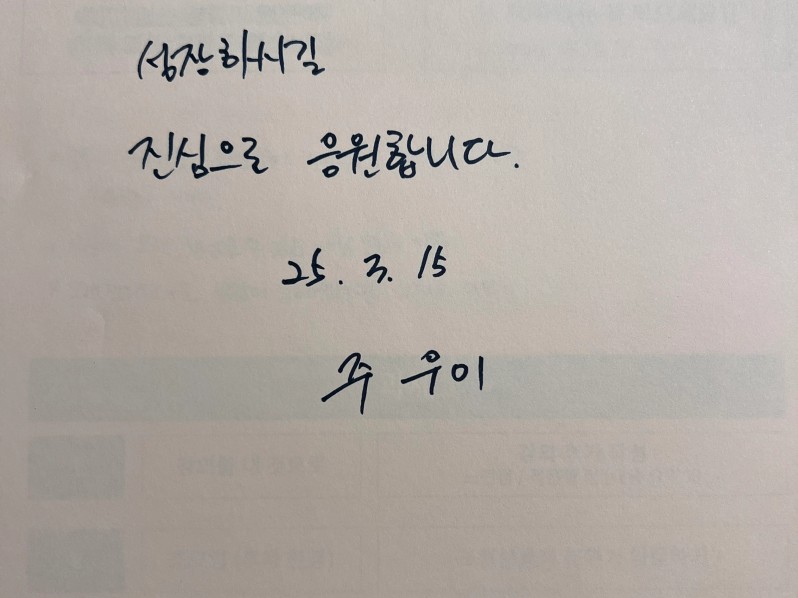 성장하시길
진심으로 응원합니다.
25. 3. 15
주 우이